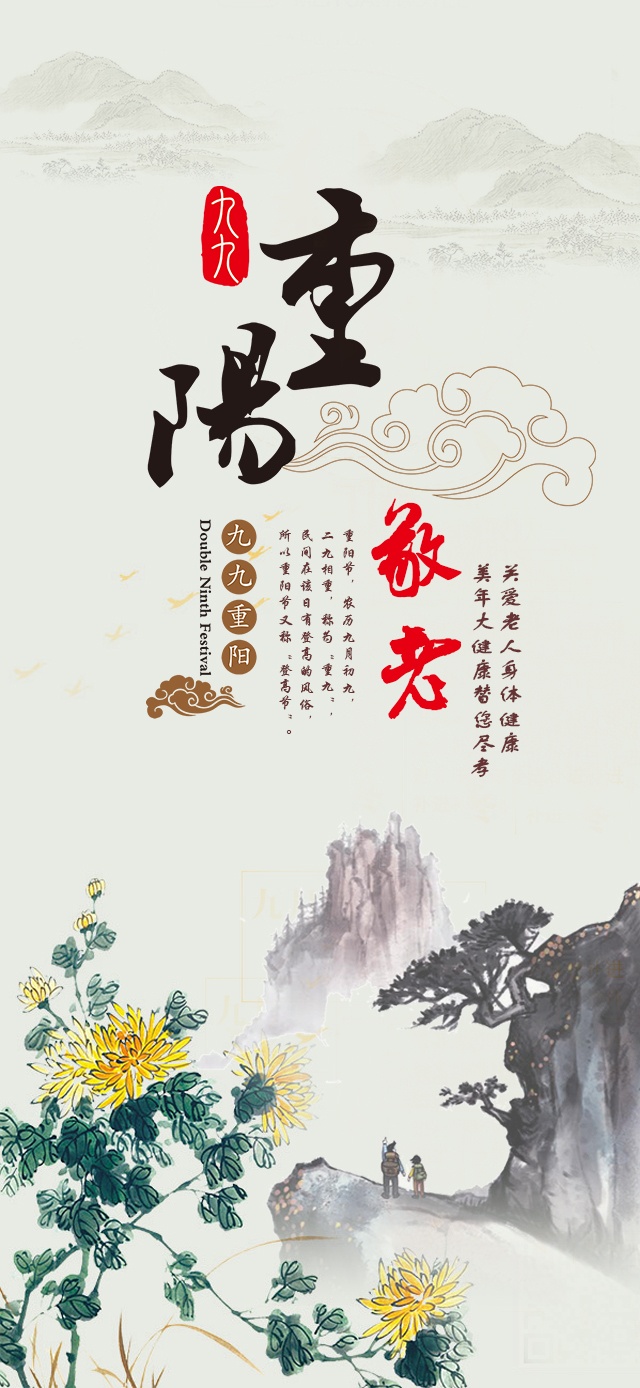 九九
重陽
敬老
关爱老人身体健康
美年大健康替您尽孝
重阳节，农历九月初九，
二九相重，称为“重九”，
民间在该日有登高的风俗，
所以重阳节又称“登高节”。
九九重阳
Double Ninth Festival